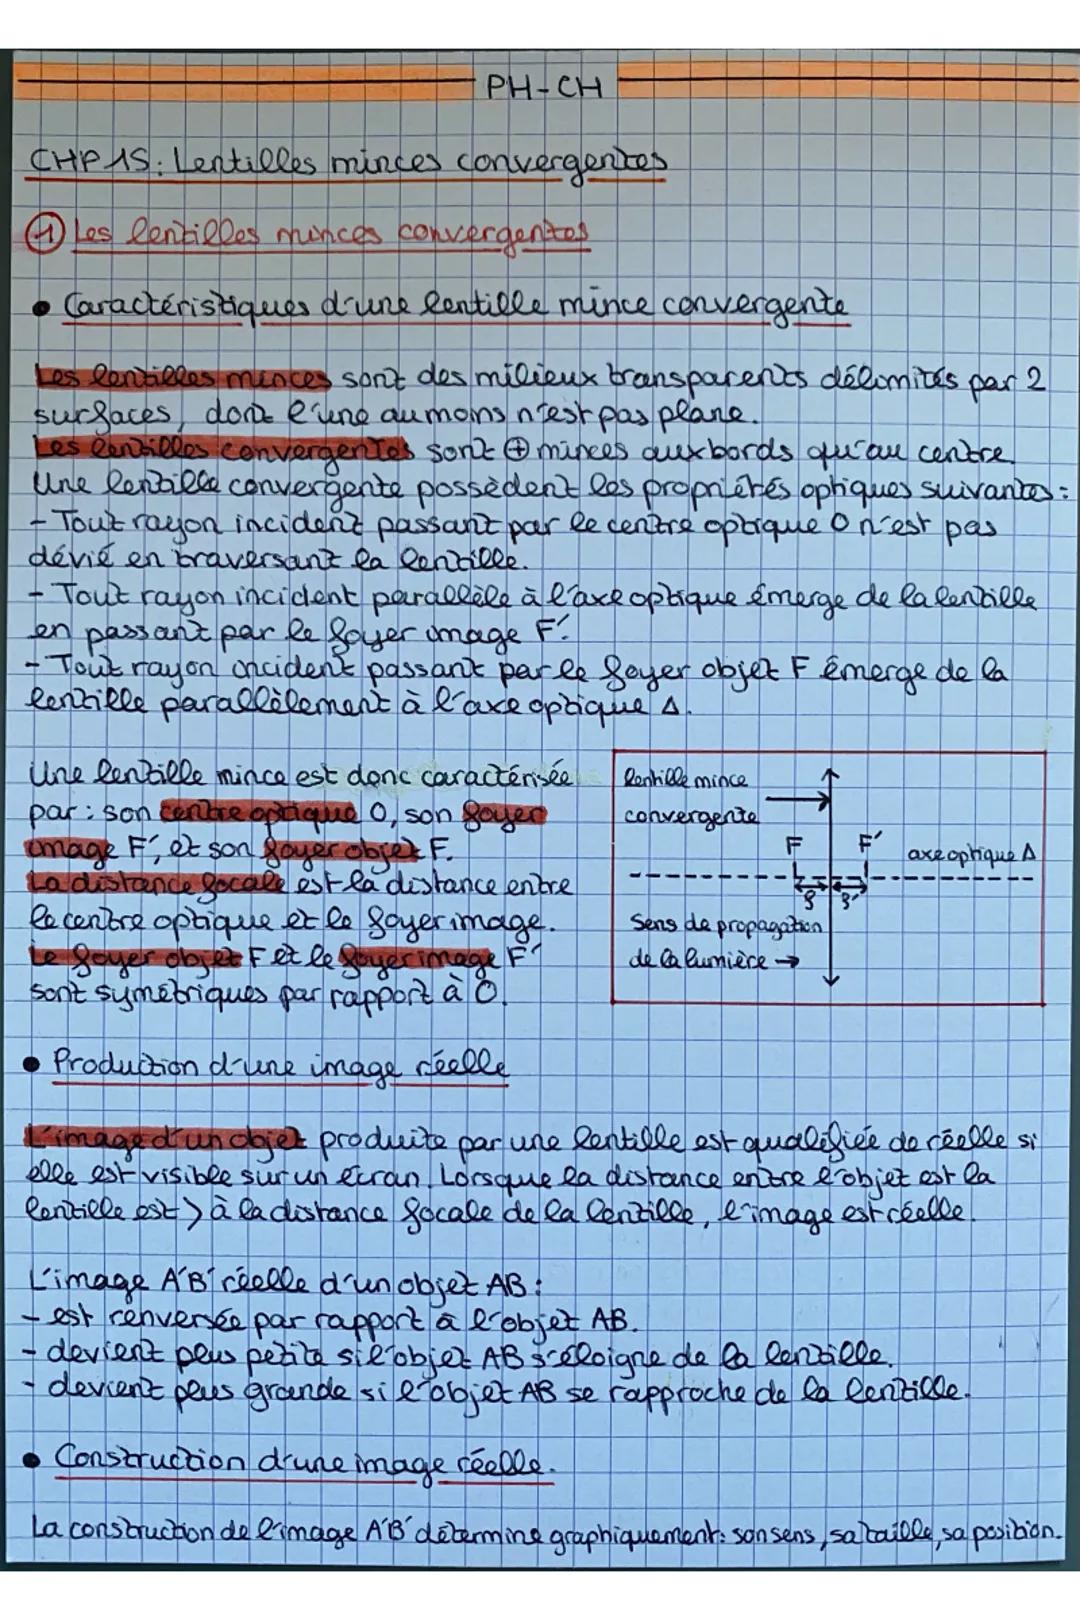 PH-CH
CHP 15: Lentilles minces convergentes
1 Les lentilles minces convergentes
• Caractéristiques d'une lentille mince convergente
Les lentilles minces sont des milieux transparents délimités par 2
surfaces, dont l'une au moins n'est pas plane.
Les lentilles convergentes sont ⊕ minces aux bords qu'au centre.
Une lentille convergente possèdent les propriétés optiques suivantes :
- Tout rayon incident passant par le centre optique O n'est pas
dévié en traversant la lentille.
- Tout rayon incident parallèle à l'axe optique émerge de la lentille
en passant par le foyer image F'.
- Tout rayon incident passant par le foyer objet F émerge de la
lentille parallèlement à l'axe optique Δ.
Une lentille mince est donc caractérisée
par : son centre optique O, son foyer
image F', et son foyer objet F.
La distance focale est la distance entre
le centre optique et le foyer image.
Le foyer objet F et le foyer image F'
sont symétriques par rapport à O.
lentille mince
convergente
F F'
axe optique Δ
f f'
Sens de propagation
de la lumière →
• Production d'une image réelle
L'image d'un objet produite par une lentille est qualifiée de réelle si
elle est visible sur un écran. Lorsque la distance entre l'objet est la
lentille est > à la distance focale de la lentille, l'image est réelle.
L'image A'B' réelle d'un objet AB :
- est renversée par rapport à l'objet AB.
- devient plus petite si l'objet AB s'éloigne de la lentille.
- devient plus grande si l'objet AB se rapproche de la lentille.
• Construction d'une image réelle.
La construction de l'image A'B' détermine graphiquement : son sens, sa taille, sa position.